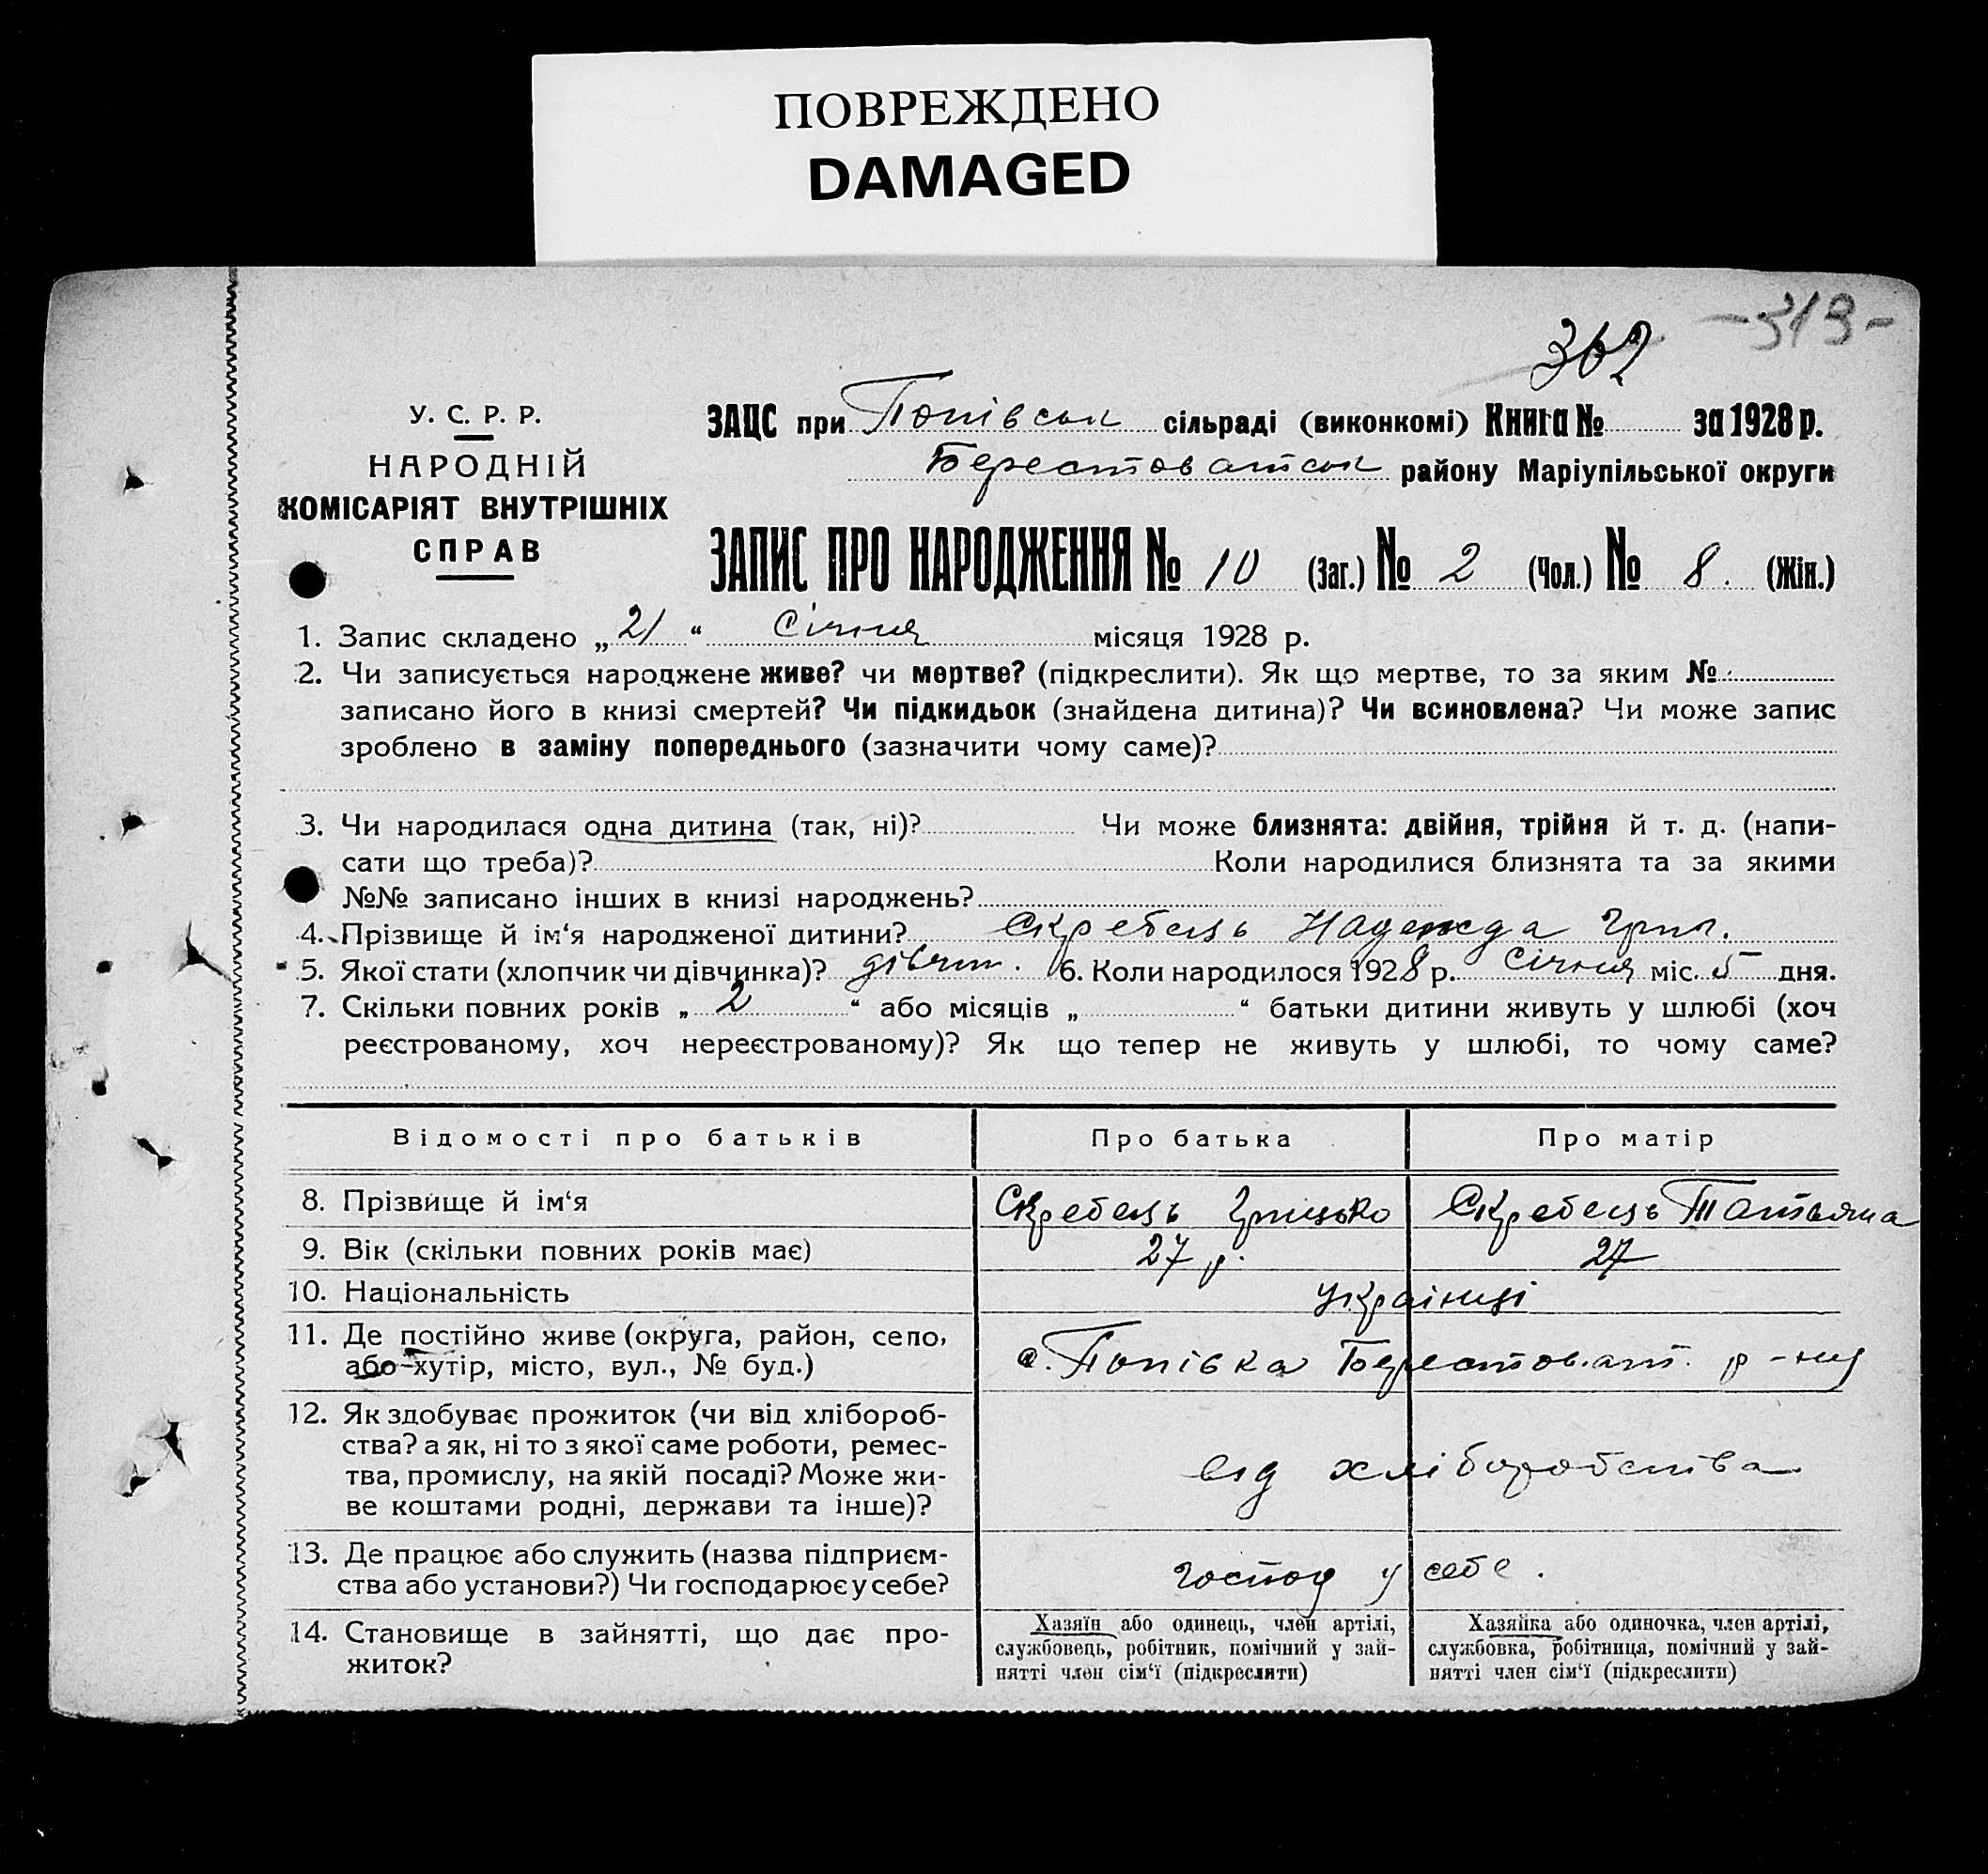 ПОВРЕЖДЕНО
DAMAGED
-313-
362
У. С. Р. Р.
НАРОДНІЙ
КОМІСАРІЯТ ВНУТРІШНІХ
СПРАВ
ЗАЦС при Попівськ сільраді (виконкомі) Книга № за 1928 р.
Берестоватськ району Маріупільської округи
ЗАПИС ПРО НАРОДЖЕННЯ № 10 (Заг.) № 2 (Чол.) № 8. (Жін.)
1. Запис складено „21“ Січня місяця 1928 р.
2. Чи записується народжене живе? чи мертве? (підкреслити). Як що мертве, то за яким №
записано його в книзі смертей? Чи підкидьок (знайдена дитина)? Чи всиновлена? Чи може запис
зроблено в заміну попереднього (зазначити чому саме)?
3. Чи народилася одна дитина (так, ні)? Чи може близнята: двійня, трійня й т. д. (напи-
сати що треба)? Коли народилися близнята та за якими
№№ записано інших в книзі народжень?
4. Прізвище й ім‘я народженої дитини? Скребець Надежда Григ.
5. Якої стати (хлопчик чи дівчинка)? дівчин. 6. Коли народилося 1928 р. Січня міс. 5 дня.
7. Скільки повних років „2“ або місяців „ “ батьки дитини живуть у шлюбі (хоч
реєстрованому, хоч нереєстрованому)? Як що тепер не живуть у шлюбі, то чому саме?
Відомості про батьків Про батька Про матір
8. Прізвище й ім‘я Скребець Грицько Скребець Татьяна
9. Вік (скільки повних років має) 27 р. 27
10. Національність українці
11. Де постійно живе (округа, район, село,
або хутір, місто, вул., № буд.) с. Попівка Берестоват. р-ну
12. Як здобуває прожиток (чи від хлібороб-
ства? а як, ні то з якої саме роботи, ремес-
тва, промислу, на якій посаді? Може жи-
ве коштами родні, держави та інше)?
від хліборобства
13. Де працює або служить (назва підприєм-
ства або установи?) Чи господарює у себе?
господ у себе.
14. Становище в зайнятті, що дає про-
житок?
Хазяїн або одинець, член артілі,
службовець, робітник, помічний у зай-
нятті член сім‘ї (підкреслити)
Хазяйка або одиночка, член артілі,
службовка, робітниця, помічний у зай-
нятті член сім‘ї (підкреслити)